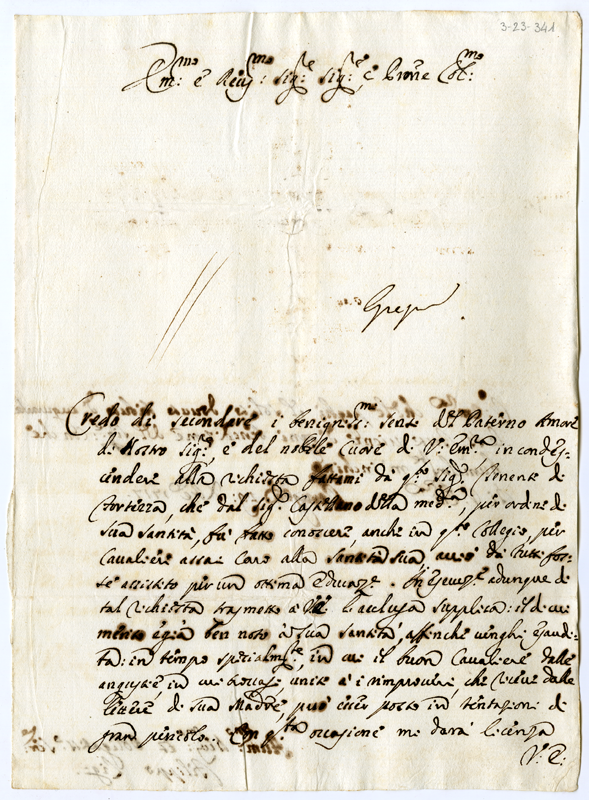 3-23-341
Em:mo e Rev:mo Sig:re Sig:re, e Prone Col:mo
Credo di secondare i benigniss:mi sensi del Paterno Amore
di Nostro Sig:re, e del nobile Cuore di V: Em:za in condes-
cendere alla richiesta fattami da q:to Sig:r Tenente di
Fortezza, che dal Sig:r Castellano della med:ma, per ordine di
Sua Santità, fù fatto conoscere, anche in q:to Collegio, per
Cavaliere assai Caro alla Santità Sua da tutti fos-
se assistito per un ottima Educaz:e. adunque di
tal richiesta trasmetto à V:E: l'acclusa supplica: il di cui
merito è già ben noto à Sua Santità, affinchè venghi esaudi-
ta: in tempo specialm:te, in cui il buon Cavaliere dalle
angustie, in cui trovasi, unite à i rimproveri, che riceve dalle
lettere di sua Madre, può esser posto in tentazione di
gran pericolo. In q:sta occasione mi darà licenza
V: E: